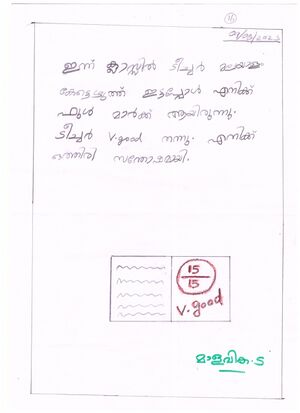 16
01/08/2023
ഇന്ന് ക്ലാസ്സിൽ ടീച്ചർ മലയാളം
കേട്ടെഴുത്ത് ഇട്ടപ്പോൾ എനിക്ക്
ഫുൾ മാർക്ക് ആയിരുന്നു.
ടീച്ചർ V.good തന്നു. എനിക്ക്
ഒത്തിരി സന്തോഷമായി.
15
15
V.good
മാളവിക.S